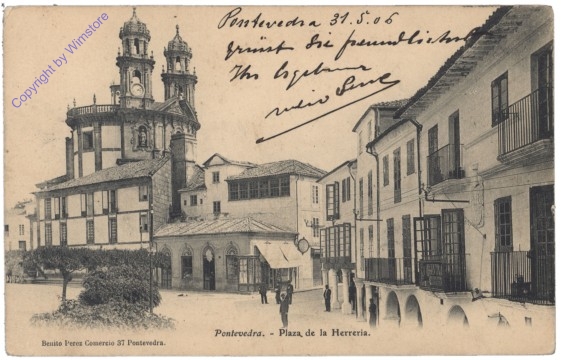 Pontevedra 31.5.06
grüsst Sie freundlichst
Ihr Ergebener
Copyright by Wimstore
Pontevedra. - Plaza de la Herreria.
Benito Perez Comerzio 37 Pontevedra.